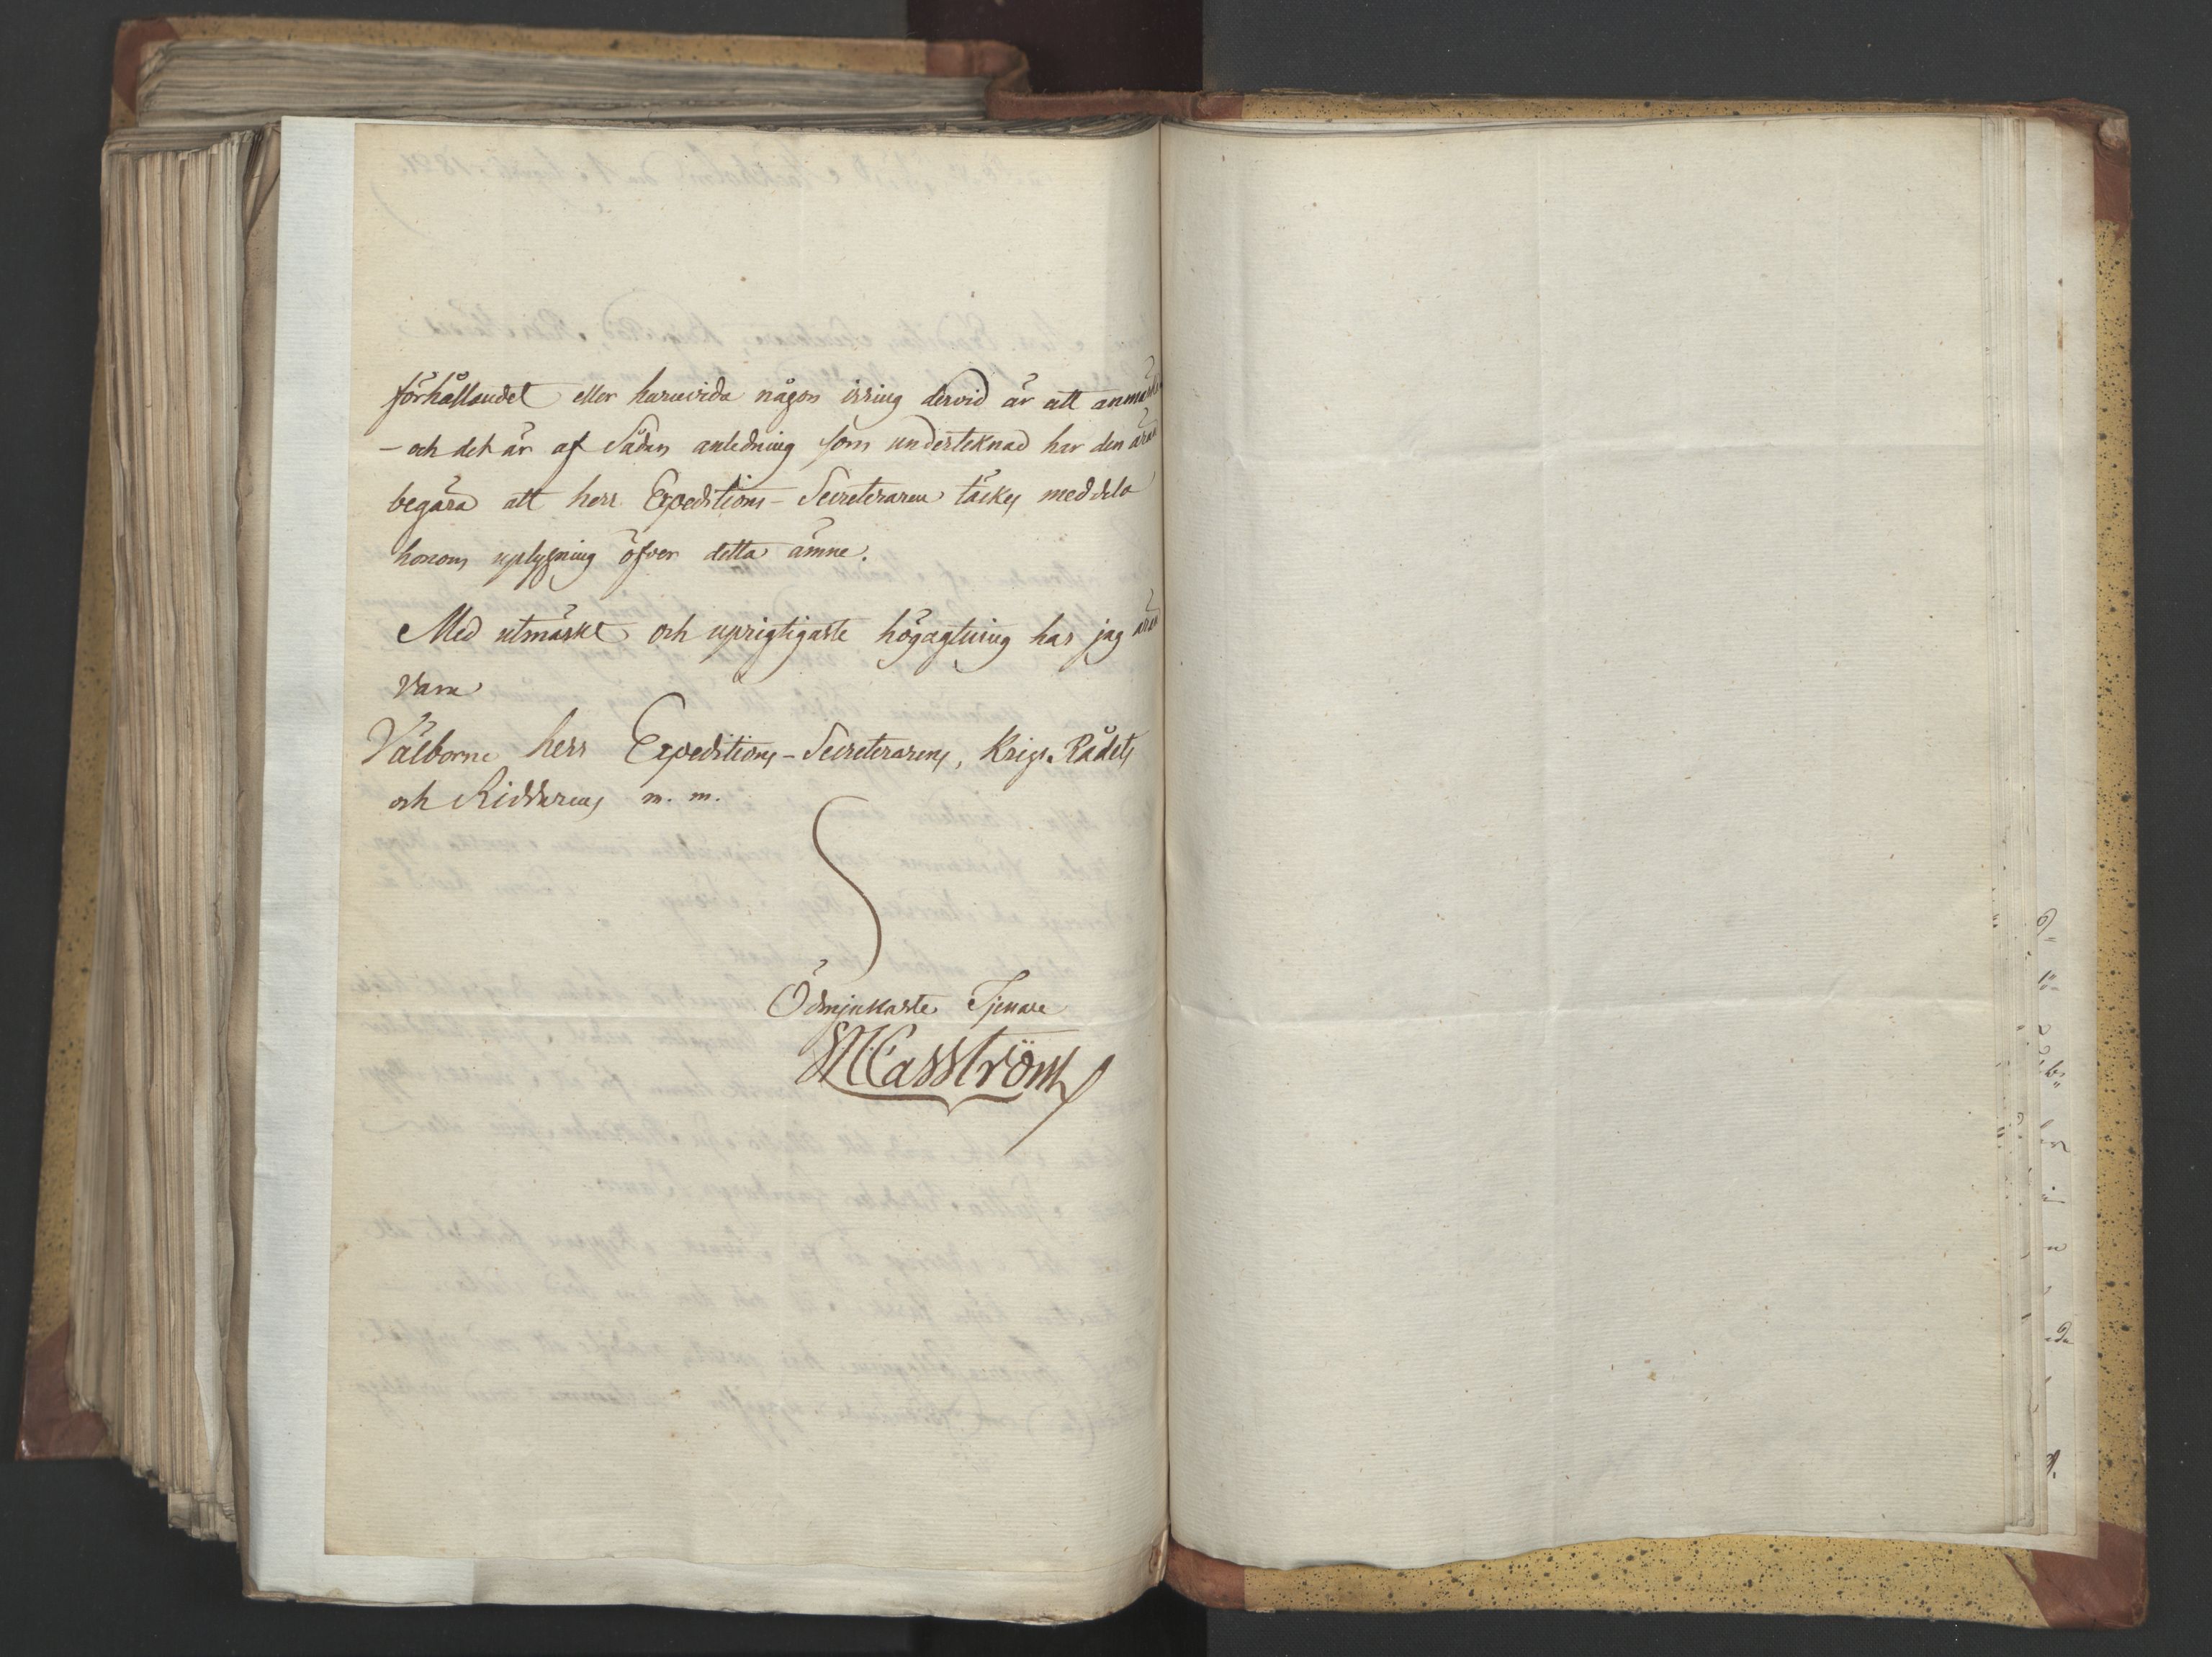 förhållandet eller huruvida någon irring dervid är att anmärka
- och det är af Sådan anledning som undertecknad har den äran
begära att herr Expeditions-Secreteraren täckes meddela
honom uplysning öfver detta ämne.
Med utmärkt och uprigtigaste högagtning har jag äran
vara
Välborne herr Expeditions-Secreterarens, Krigs-Rådets
och Riddarens m. m.
Ödmjukaste Tjenare
Casström